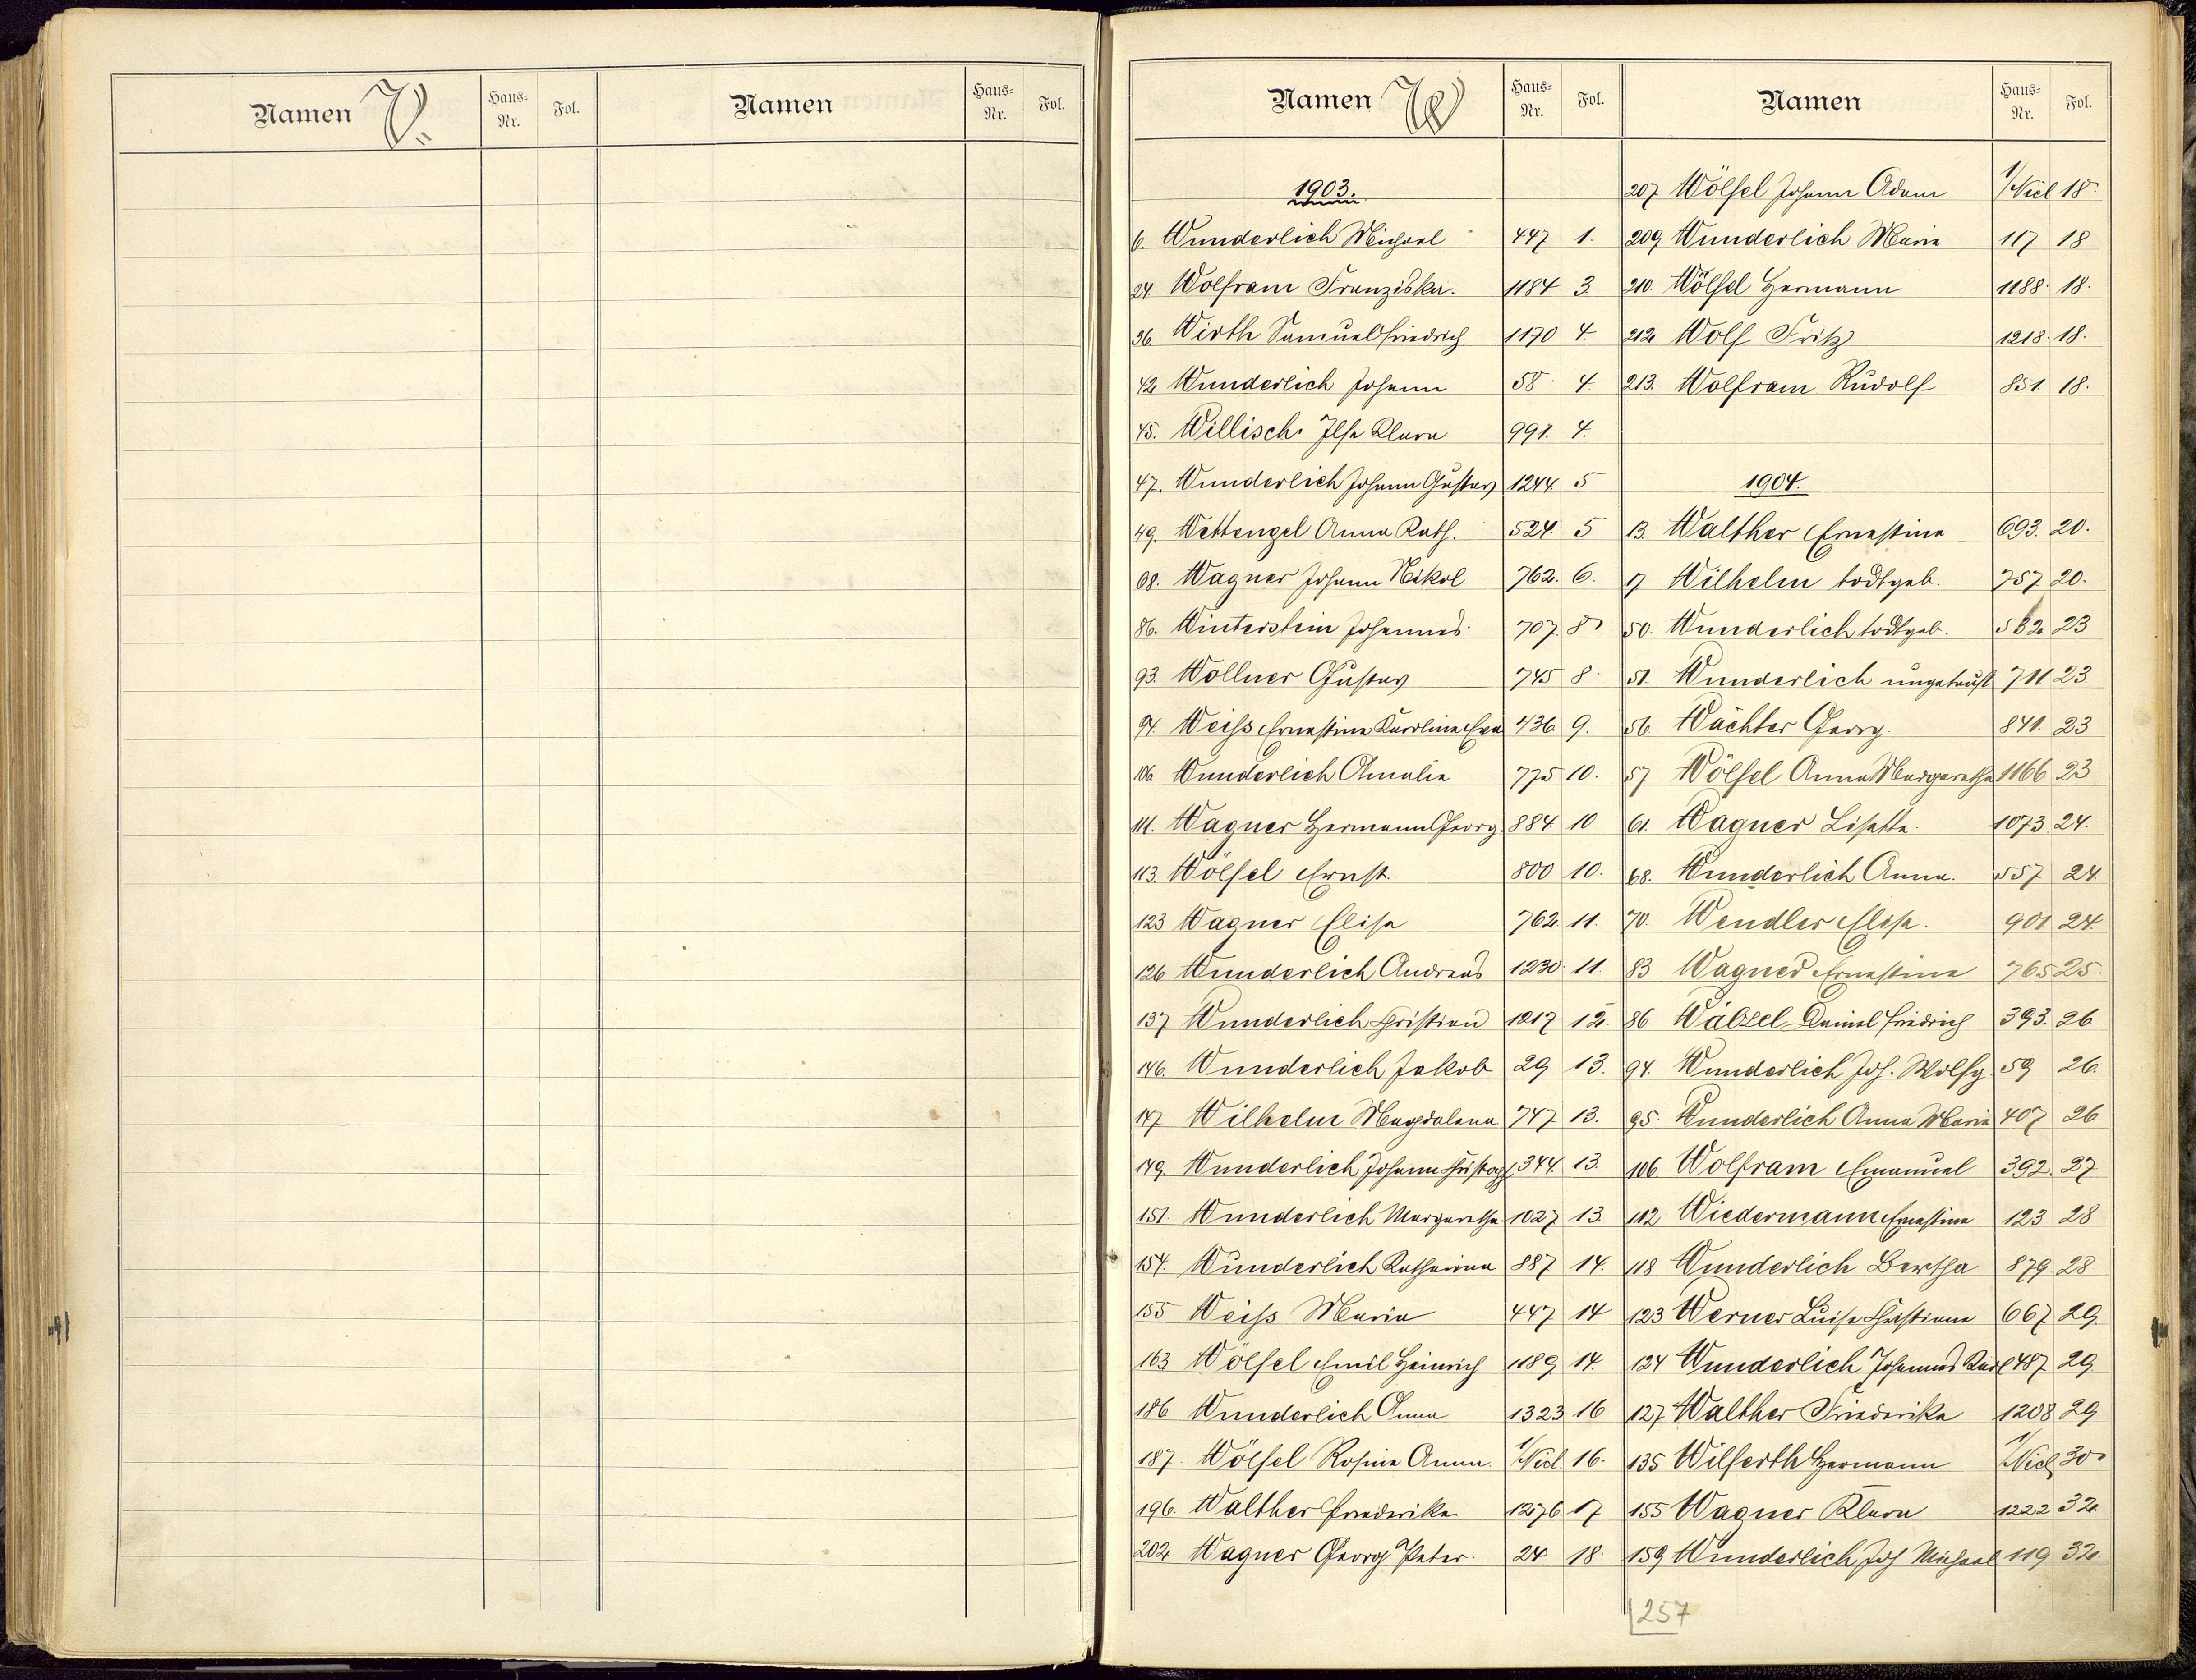 Namen V.
Haus-Nr.
Fol.
Namen
Haus-Nr.
Fol.
Namen W
Haus-Nr.
Fol.
1903.
6. Wunderlich Michael 447 1.
24. Wolfram Franziska. 1184 3
36. Wirth Samuel Friedrich 1170 4
42 Wunderlich Johann 58 4.
45. Willisch Ilse Klara 991. 4.
47. Wunderlich Johann Gustav 1244. 5
49. Wettengel Anna Kath. 524. 5
68. Wagner Johann Nikol 762. 6.
86. Winterstein Johannes 707. 8
93. Wollner Gustav 745 8
94. Weiss Ernestine Karoline Eva 436. 9.
106 Wunderlich Amalie 775 10.
111. Wagner Hermann Georg 884. 10
113. Wölfel Ernst. 800 10.
123 Wagner Elise 762. 11.
126 Wunderlich Andreas 1230. 11.
137 Wunderlich Christian 1217 12.
146. Wunderlich Jakob 29 13.
147 Wilhelm Magdalena 747 13.
149. Wunderlich Johann Christoph 344. 13.
151. Wunderlich Margaretha 1027 13
154. Wunderlich Katharina 887 14.
155 Weiss Maria 447 14
163 Wölfel Emil Heinrich 1189 14.
186 Wunderlich Anna 1323 16
187. Wölfel Rosine Anna. 1/Nicl. 16.
196. Walther Friederike 1276. 17
202 Wagner Georg Peter. 24 18.
Namen
Haus-Nr.
Fol.
207 Wölfel Johann Adam 1/Nicl 18.
209 Wunderlich Maria 117 18
210. Wölfel Hermann 1188. 18.
212 Wolf Fritz 1218. 18.
213. Wolfram Rudolf 851. 18.
1904.
13. Walther Ernestine 693. 20.
17 Wilhelm todtgeb. 757 20.
50. Wunderlich todtgeb. 23
51. Wunderlich ungetauft 711 23
56. Wächter Georg. 841. 23
57 Wölfel Anna Margaretha 1166 23
61. Wagner Lisette. 1073. 24.
68. Wunderlich Anna. 557 24.
70. Wendler Elise. 901 24.
83 Wagner Ernestine 765 25.
86 Daniel Friedrich 393. 26
94. Wunderlich Joh. Wolfg. 59 26.
95. Wunderlich Anna Maria 407 26
106. Wolfram Emanuel 392. 27
112 Wiedermann Ernestine 123 28
118 Wunderlich Bertha 879 28
123 Werner Luise Christiane 667 29.
124 Wunderlich Johannes Karl 487 29
127 Walther Friederika 1208 29
135 Wilferth Hermann 1/Nicl 30
155 Wagner Klara 1222 32
159 Wunderlich Joh Michael 119 32.
257